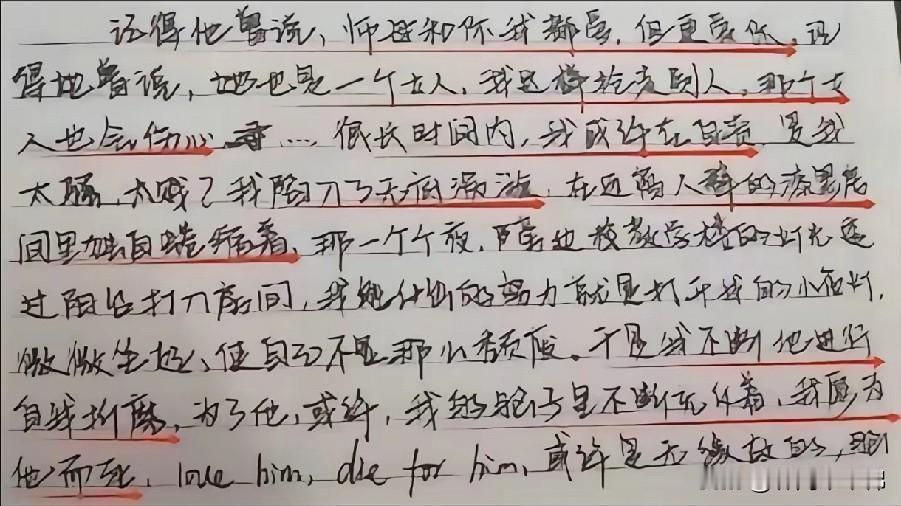 记得他曾说，师母和你我都爱，但更爱你，记
得他曾说，她也是一个女人，我这样被发到人，那个女
人也会伤心 …… 很长时间内，我或许在自责，是我
太骚，太贱？我陷入了无底漩涡，在远离人群的漆黑房
间里如自蜷缩着，那一个个夜，隔边校教学楼的灯光透
过阳台打入房间，我 的努力就是打开我的小夜灯，
微微坐起，使自己不是那么颓废。于是我不断地进行
自我折磨，为了他，或许，我的 子里不断 着，我愿为
他而死，love him, die for him, 或许是无缘故的，